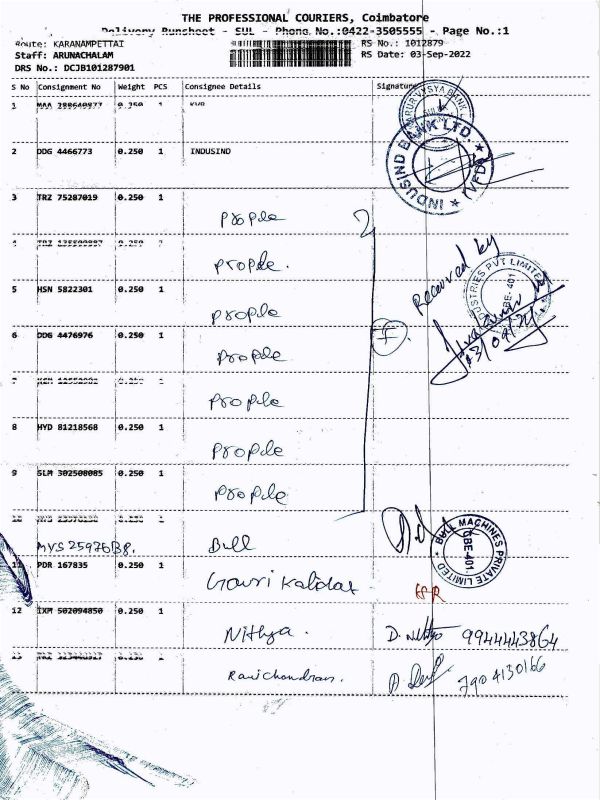 THE PROFESSIONAL COURIERS, Coimbatore
Delivery Runsheet - SUL - Phone No.:0422-3505555 - Page No.:1
Route: KARANAMPETTAI
RS No.: 1012879
Staff: ARUNACHALAM
RS Date: 03-Sep-2022
DRS No.: DCJB101287901
S No Consignment No Weight PCS Consignee Details Signature
1 0.250 1 KVB
KARUR VYSYA BANK
2 DDG 4466773 0.250 1 INDUSIND
INDUSIND BANK LTD.
3 TRZ 75287019 0.250 1
prople
4
prople.
Received by
5 HSN 5822301 0.250 1
prople
INDUSTRIES PVT LIMITED
CBE-401
6 DDG 4476976 0.250 1
prople
7
prople
8 HYD 81218568 0.250 1
prople
9 SLM 302508085 0.250 1
prople
10
Bull
BULL MACHINES PRIVATE LIMITED
CBE-401.
11 PDR 167835 0.250 1
Gowri Kalidas
12 IXM 502094850 0.250 1
Nithya. D. Nithya 9944443864
13
Ravichandran. 7904130166